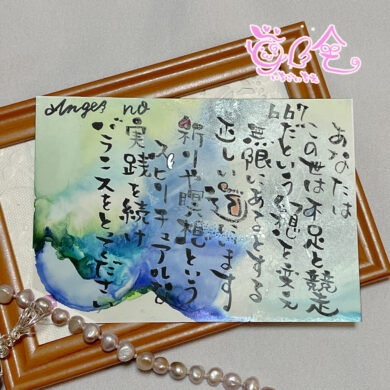 Angel no 667
あなたは
この世は不足と競走
だという ことを変え
無限にあるとする
正しい道にいます
祈りや瞑想という
スピリチュアルな
実践を続け
バランスをとってください